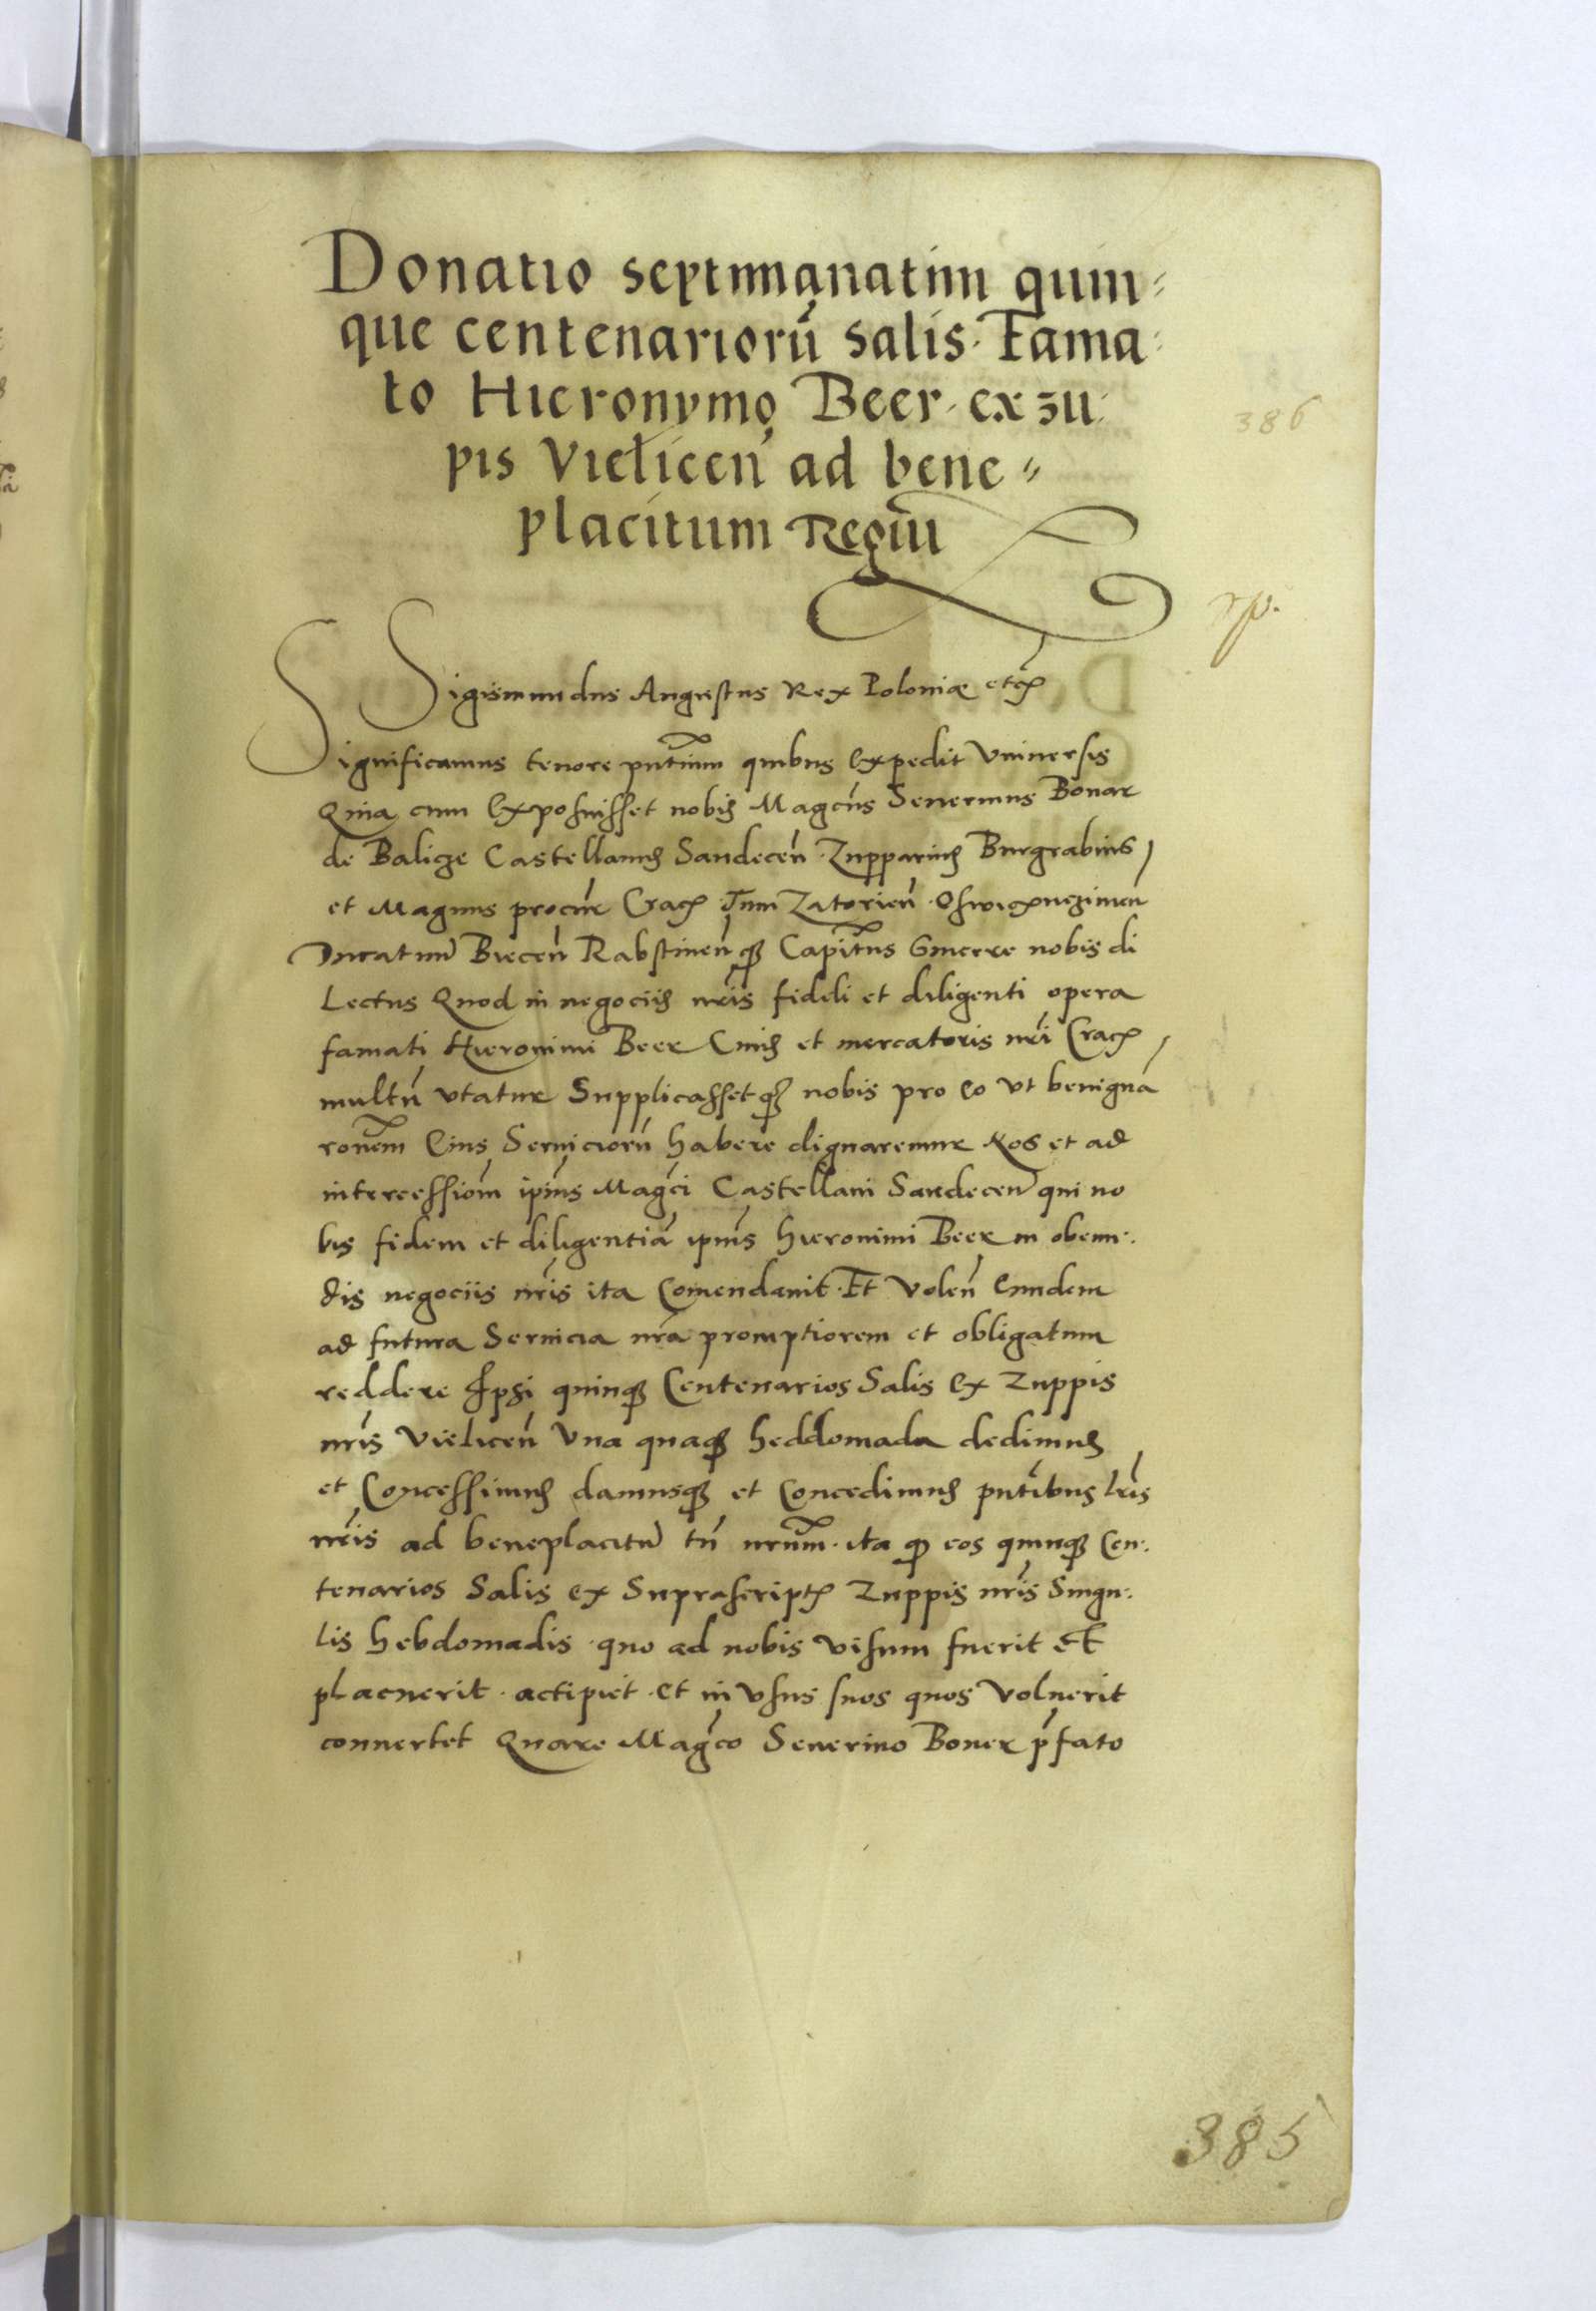 Donatio septimanatim quin⸗
que centenariorũ salis. Fama⸗
to Hieronymo Beer. ex zu⸗
386
pis Vielicen̄ ad bene⸗
placitum Regiū
Sigismundus Augustus Rex Poloniæ etc̃
Significamus tenore pñtium quibus Expedit Vniuersis
Quia cum Exposuisset nobis Magcũs Seuerinus Bonar
de Balicze Castellanus Sandecen̄ Zupparius Burgrabius
et Magnus procur̃ Crac̃ Tum Zatorien̄ Oswiącznezimen̄
Ducatuũ Biecen̄ Rabstinen̄qꝫ Capitñus Syncere nobis di
Lectus Quod in negociis nr̃is fideli et diligenti opera
famati Hieronimi Beer Ciuis et mercatoris nr̃i Crac̃
multũ vtatur Supplicassetqꝫ nobis pro eo vt benignã
rõnem Eius Seruiciorũ habere dignaremur Nos et ad
intercessiom̃ ipĩus Magc̃i Castellani Sandecen̄ qui no
bis fidem et diligentiã ipĩus Hieronimi Beer in obeun⸗
dis negociis nr̃is ita Com̃endauit. Et Volen̄ Eundem
ad futura Seruicia nr̃a promptiorem et obligatum
reddere Ipsi quinqꝫ Centenarios Salis Ex Zuppis
nr̃is Vielicen̄ Vna quaqꝫ heddomada dedimus
et Concessimus damusqꝫ et Concedimus pñtibus lr̃is
nr̃is ad beneplacitũ tñ nrũm. ita qꝫ eos quinqꝫ Cen⸗
tenarios Salis ex Suprascript̃ Zuppis nr̃is Singu⸗
lis hebdomadis quo ad nobis visum fuerit Et
placuerit. accipiet. et in vsus suos quos Voluerit
conuertet Quare Magc̃o Seuerino Boner p̃fato
385